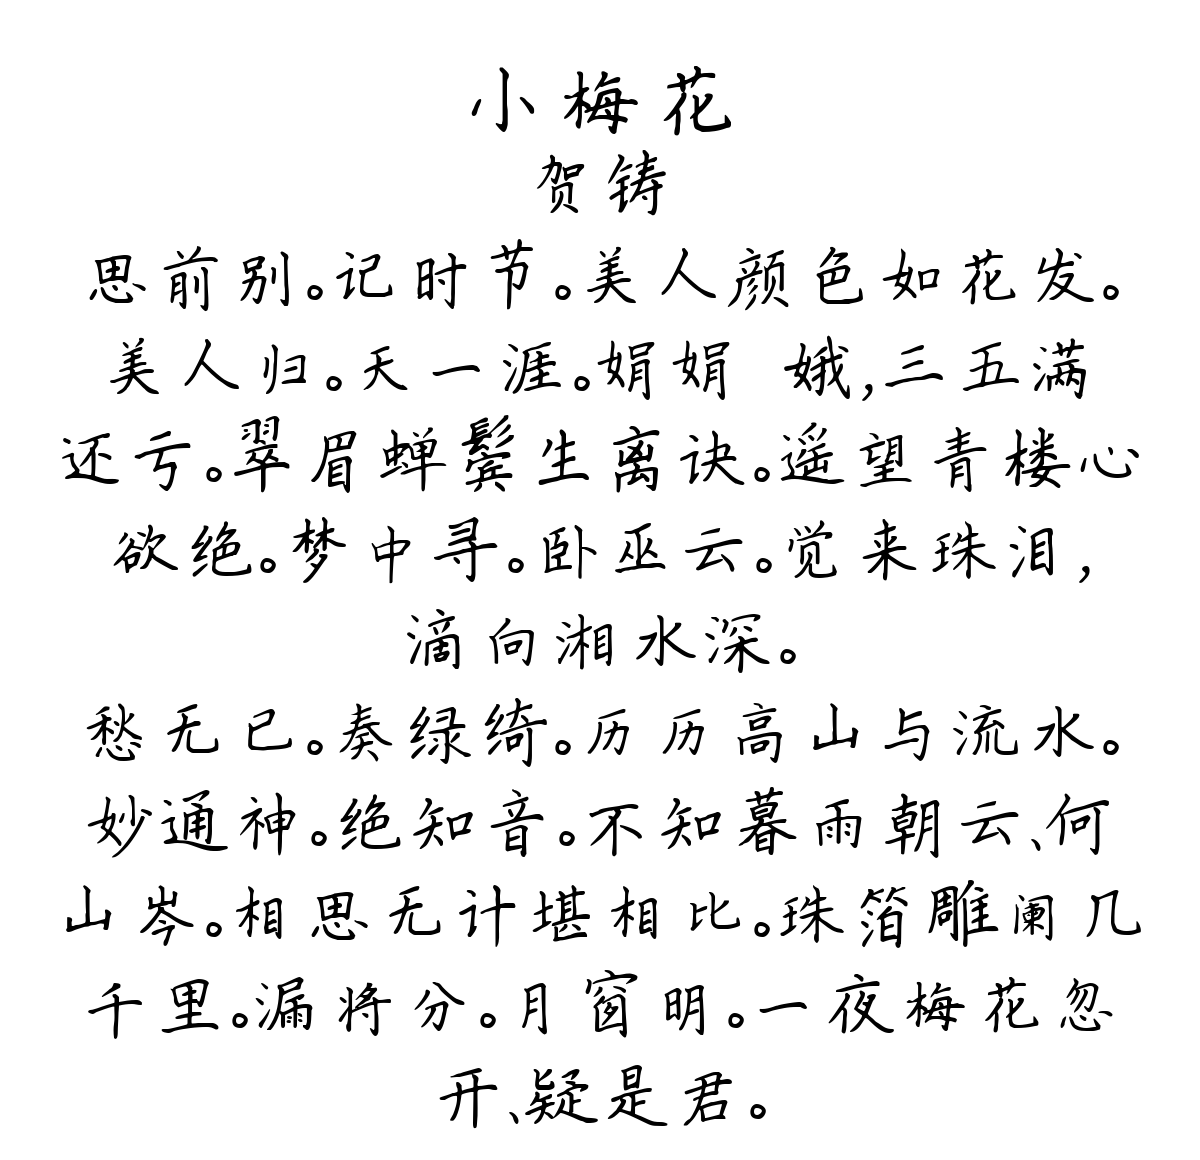 小梅花
贺铸
思前别。记时节。美人颜色如花发。
美人归。天一涯。娟娟 娥,三五满
还亏。翠眉蝉鬓生离诀。遥望青楼心
欲绝。梦中寻。卧巫云。觉来珠泪,
滴向湘水深。
愁无已。奏绿绮。历历高山与流水。
妙通神。绝知音。不知暮雨朝云、何
山岑。相思无计堪相比。珠箔雕阑几
千里。漏将分。月窗明。一夜梅花忽
开、疑是君。